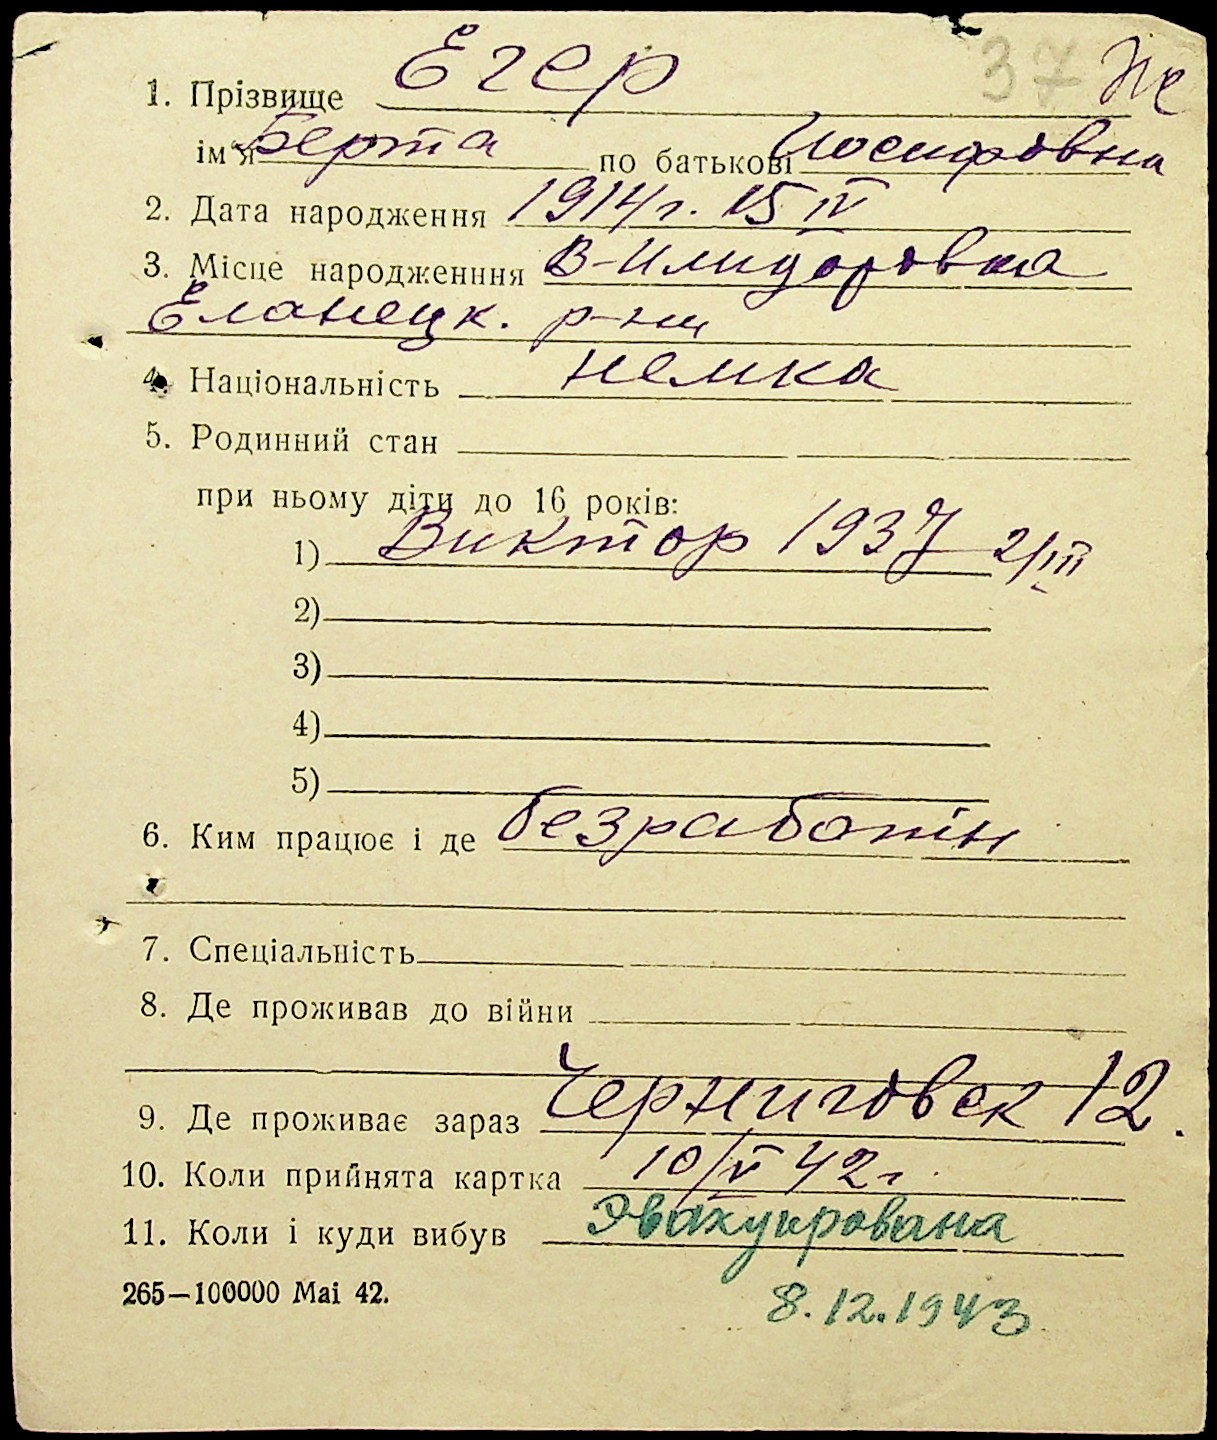 37 Не
1. Прізвище Егер
ім'я Берта по батькові Иосифовна
2. Дата народження 1914 г. 15 IV
3. Місце народженння В-Илидоровка
Еланецк. р-на
4. Національність немка
5. Родинний стан
при ньому діти до 16 років:
1) Виктор 1937 2/III
2)
3)
4)
5)
6. Ким працює і де безработін
7. Спеціальність
8. Де проживав до війни
9. Де проживає зараз Черниговск 12.
10. Коли прийнята картка 10/V 42 г.
11. Коли і куди вибув Эвакуирована
265—100000 Mai 42.
8.12.1943